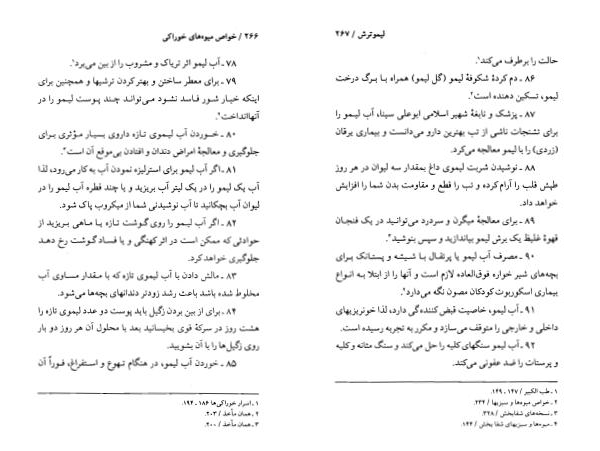 ۲۶۶ / خواص میوه‌های خوراکی
۷۸ ـ آب لیمو اثر تریاک و مشروب را از بین می‌برد¹.
۷۹ ـ برای معطر ساختن و بهتر کردن ترشیها و همچنین برای
اینکه خیار شور فاسد نشود می‌تواند چند پوست لیمو را در
آنها انداخت².
۸۰ ـ خوردن آب لیموی تازه داروی بسیار مؤثری برای
جلوگیری و معالجهٔ امراض دندان و افتادن بی‌موقع آن است³.
۸۱ ـ اگر آب لیمو برای استرلیزه نمودن آب به کار می‌رود، لذا
آب یک لیمو را در یک لیتر آب بریزید و یا چند قطره آب لیمو را در
لیوان آب بچکانید تا آب نوشیدنی شما از میکروب پاک شود.
۸۲ ـ اگر آب لیمو را روی گوشت تازه یا ماهی بریزید از
حوادثی که ممکن است در اثر کهنگی و یا فساد گوشت رخ دهد
جلوگیری خواهد کرد.
۸۳ ـ مالش دادن با آب لیموی تازه که با مقدار مساوی آب
مخلوط شده باشد باعث رشد زودتر دندانهای بچه‌ها می‌شود.
۸۴ ـ برای از بین بردن زگیل باید پوست دو عدد لیموی تازه را
هشت روز در سرکهٔ قوی بخیسانید بعد با محلول آن هر روز دو بار
روی زگیل‌ها را با آن بشویید.
۸۵ ـ خوردن آب لیمو، در هنگام تهوع و استفراغ، فوراً آن
۱ ـ اسرار خوراکی‌ها ۱۸۶ ـ ۱۹۴.
۲ ـ همان مأخذ / ۲۰۳.
۳ ـ همان مأخذ / ۲۰۰.
لیموترش / ۲۶۷
حالت را برطرف می‌کند¹.
۸۶ ـ دم کردهٔ شکوفهٔ لیمو (گل لیمو) همراه با برگ درخت
لیمو، تسکین دهنده است².
۸۷ ـ پزشک و نابغهٔ شهیر اسلامی ابوعلی سینا، آب لیمو را
برای تشنجات ناشی از تب بهترین دارو می‌دانست و بیماری یرقان
(زردی) را با لیمو معالجه می‌کرد.
۸۸ ـ نوشیدن شربت لیموی داغ بمقدار سه لیوان در هر روز
طپش قلب را آرام کرده و تب را قطع و مقاومت بدن شما را افزایش
خواهد داد.
۸۹ ـ برای معالجهٔ میگرن و سردرد می‌توانید در یک فنجان
قهوهٔ غلیظ یک برش لیمو بیاندازید و سپس بنوشید³.
۹۰ ـ مصرف آب لیمو یا پرتقال با شیشه و پستانک برای
بچه‌های شیر خواره فوق‌العاده لازم است و آنها را از ابتلا به انواع
بیماری اسکوربوت کودکان مصون نگه می‌دارد⁴.
۹۱ ـ آب لیمو، خاصیت قبض کننده‌گی دارد، لذا خونریزیهای
داخلی و خارجی را متوقف می‌سازد و مکرر به تجربه رسیده است.
۹۲ ـ آب لیمو سنگهای کلیه را حل می‌کند و سنگ مثانه و کلیه
و پرستات را ضد عفونی می‌کند.
۱ ـ طب الکبیر / ۱۴۷ ـ ۱۴۹.
۲ ـ خواص میوه‌ها و سبزیها / ۲۳۴.
۳ ـ نسخه‌های شفابخش / ۳۲۸.
۴ ـ میوه‌ها و سبزیهای شفا بخش / ۱۴۴.